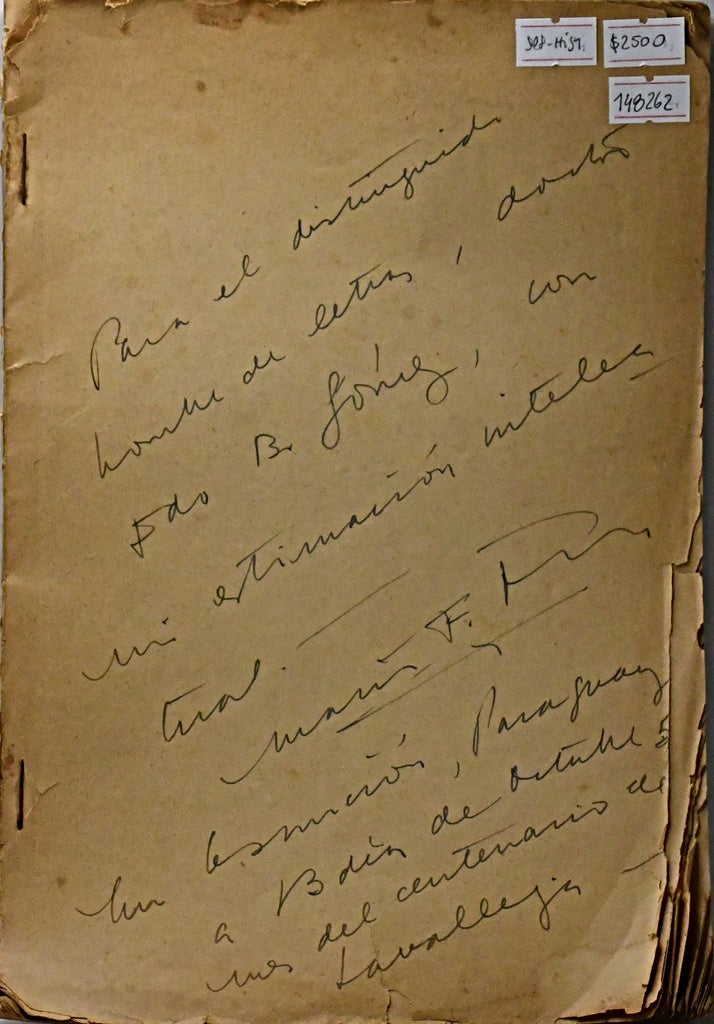 $2500
148262.
Para el distinguido
hombre de letras, doctor
Edo B. Gómez, con
mi estimación intelec
tual.
F.
En Asunción, Paraguay
a 13 días de octubre,
mes del centenario de
Lavalleja